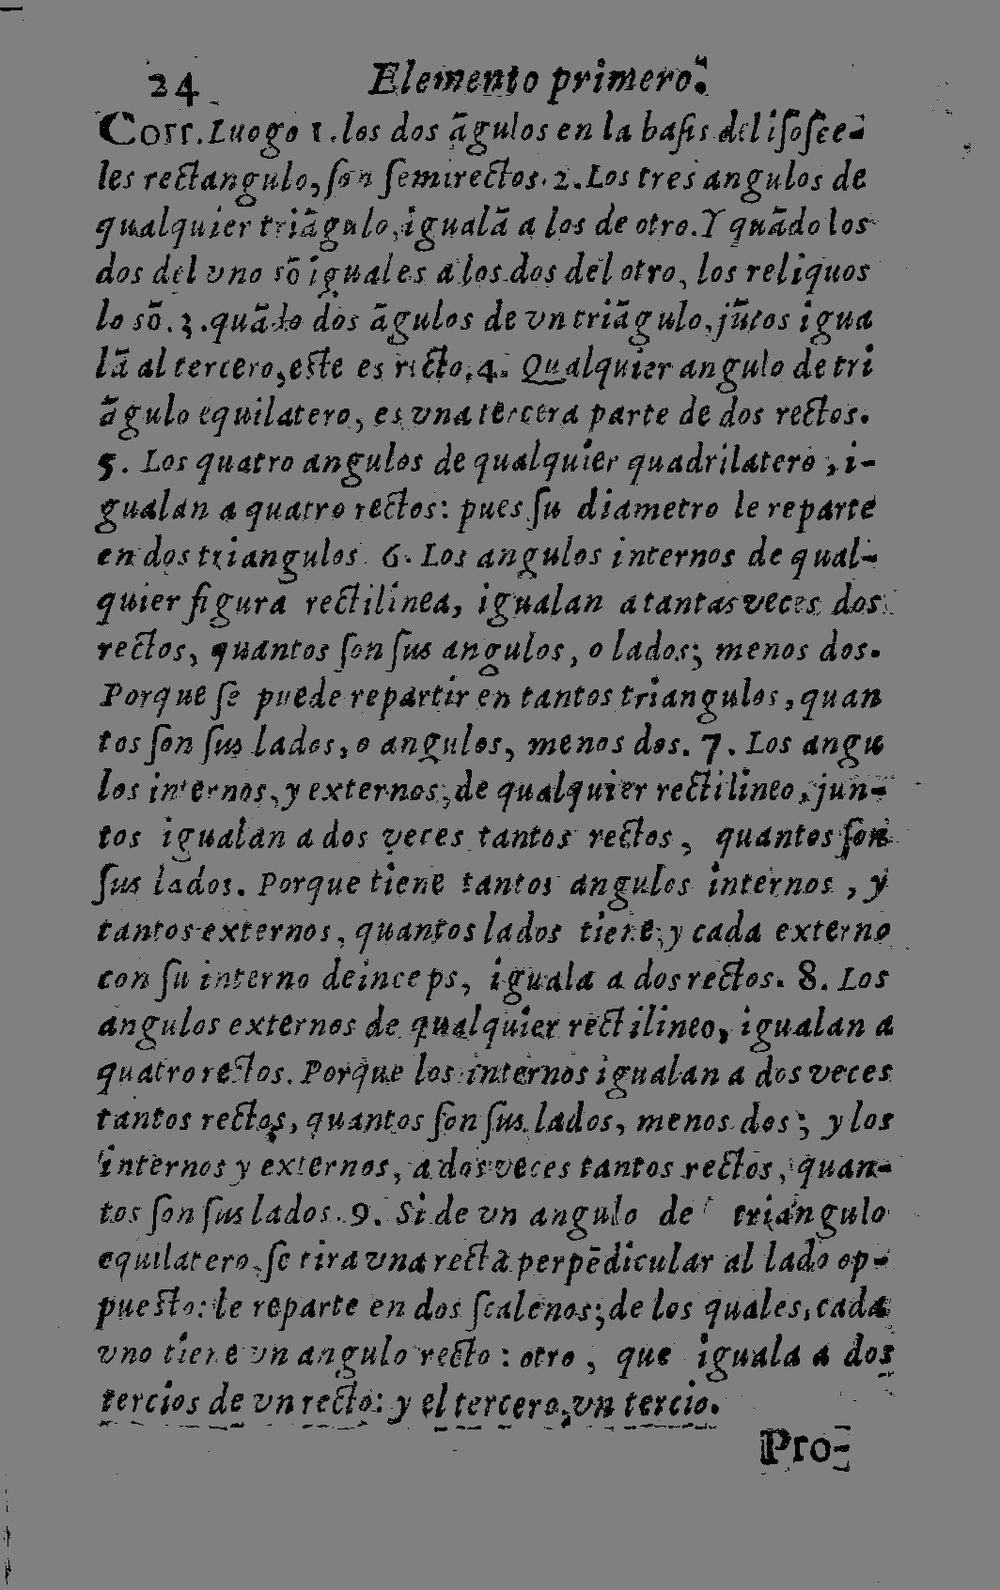 24 Elemento primero.
Corr. Luogo 1. los dos āgulos en la basis del isosce-
les rectangulo, son semirectos. 2. Los tres angulos de
qualquier triāgulo, igualā a los de otro. Y quādo los
dos del vno sō iguales a los dos del otro, los reliquos
lo sō. 3. quādo dos āgulos de vn triāgulo, jūtos igua
lā al tercero, este es recto. 4. Qualquier angulo de tri
āgulo equilatero, es vna tercera parte de dos rectos.
5. Los quatro angulos de qualquier quadrilatero, i-
gualan a quatro rectos: pues su diametro le reparte
en dos triangulos. 6. Los angulos internos de qual-
quier figura rectilinea, igualan a tantas veces dos
rectos, quantos son sus angulos, o lados; menos dos.
Porque se puede repartir en tantos triangulos, quan
tos son sus lados, o angulos, menos dos. 7. Los angu
los internos, y externos, de qualquier rectilineo, jun-
tos igualan a dos veces tantos rectos, quantos son
sus lados. Porque tiene tantos angulos internos, y
tantos externos, quantos lados tiene, y cada externo
con su interno deinceps, iguala a dos rectos. 8. Los
angulos externos de qualquier rectilineo, igualan a
quatro rectos. Porque los internos igualan a dos veces
tantos rectos, quantos son sus lados, menos dos; y los
internos y externos, a dos veces tantos rectos, quan-
tos son sus lados. 9. Si de vn angulo de triangulo
equilatero, se tira vna recta perpēdicular al lado op-
puesto: le reparte en dos scalenos; de los quales, cada
vno tiene vn angulo recto: otro, que iguala a dos
tercios de vn recto: y el tercero, vn tercio.
Pro-